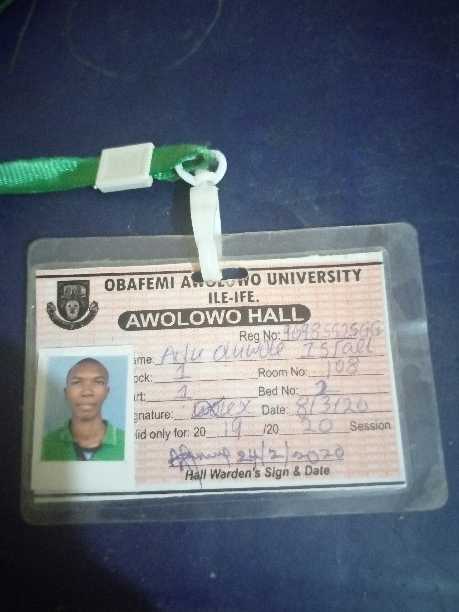 OBAFEMI AWOLOWO UNIVERSITY
ILE-IFE.
AWOLOWO HALL
Reg No:
ame:
ock: 1 Room No: 108
rt: 1 Bed No: 2
gnature: Date: 8/3/20
lid only for: 20 19 /20 20 Session
24/2/2020
Hall Warden's Sign & Date